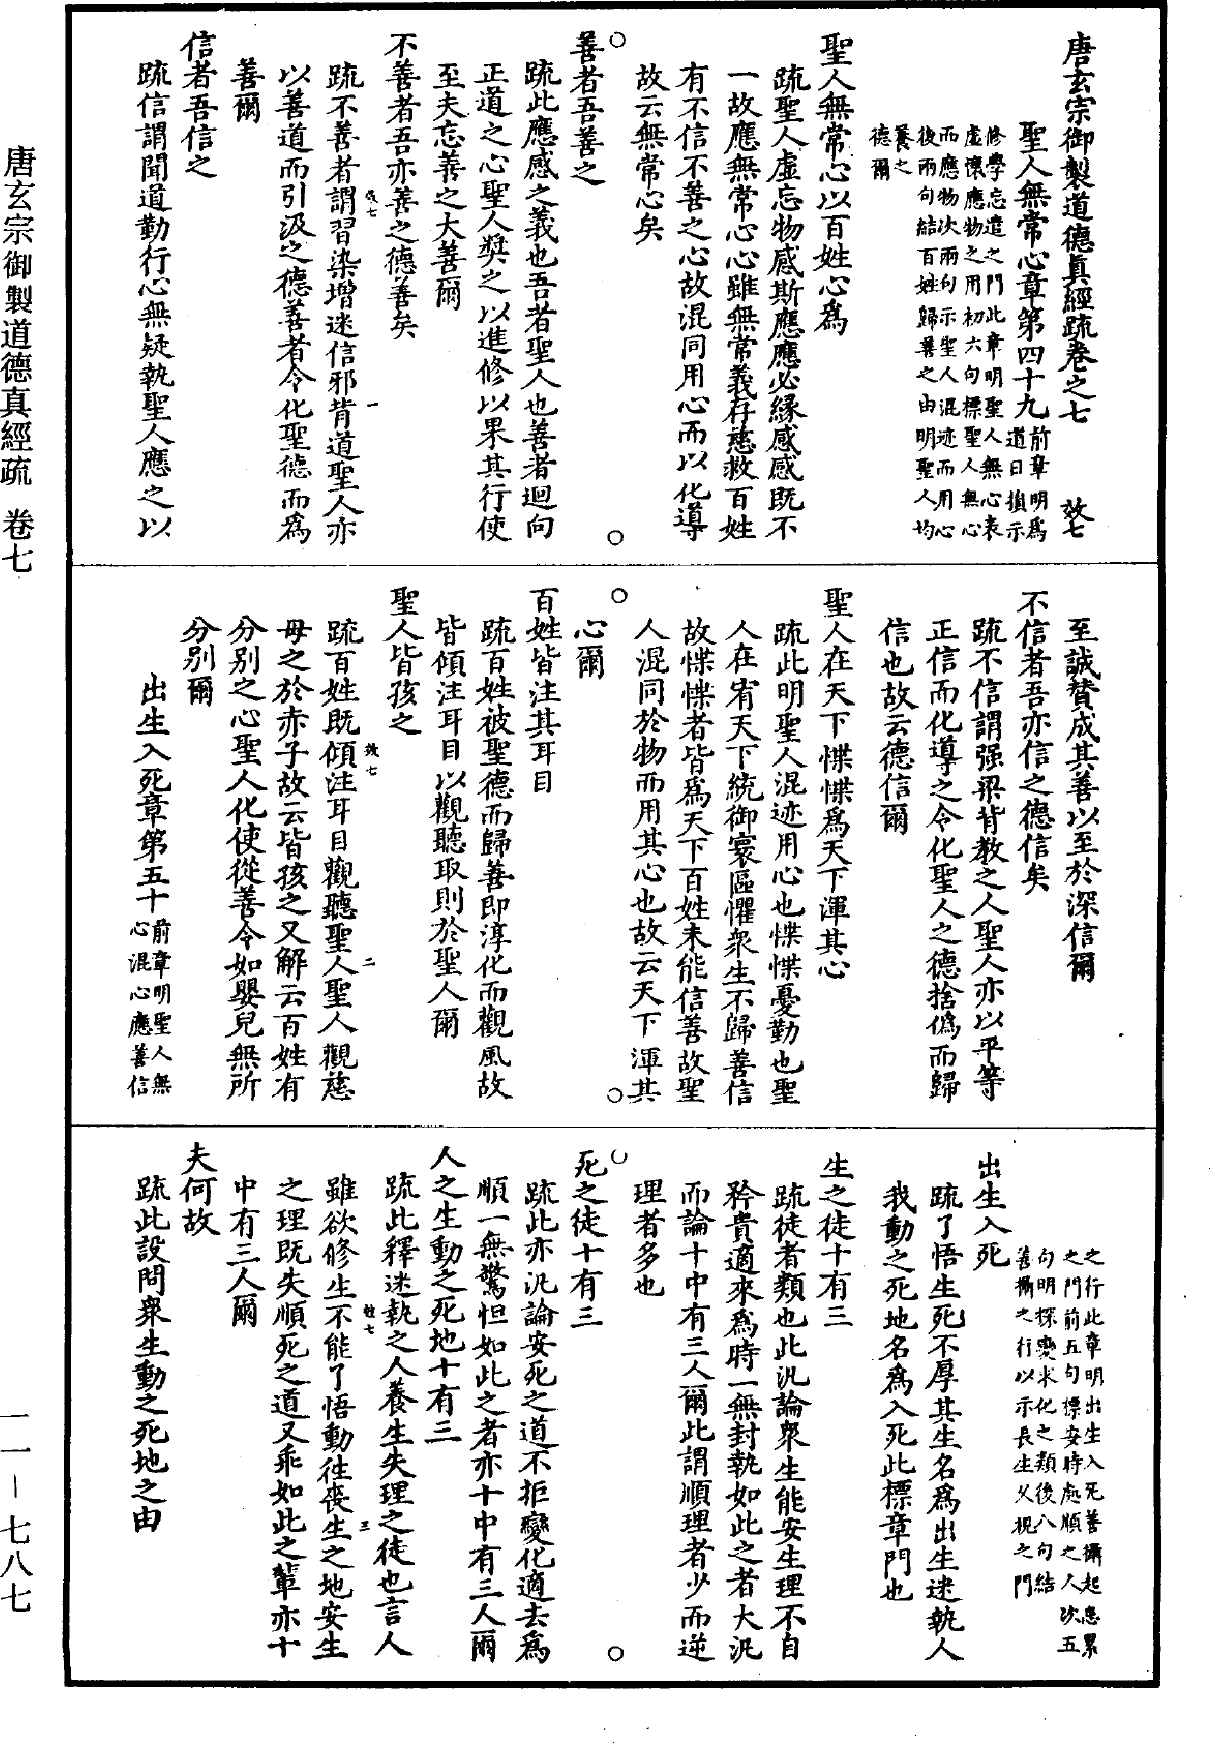 唐玄宗御製道德眞經疏卷之七　效七
聖人無常心章第四十九前章明爲
道日損示
修學忘遣之門此章明聖人無心表
虛懷應物之用初六句標聖人無心
而應物次兩句示聖人混迹而用心
後兩句結百姓歸善之由明聖人均
養之
德爾
聖人無常心以百姓心爲
疏聖人虛忘物感斯應應必緣感感既不
一故應無常心心雖無常義存慈救百姓
有不信不善之心故混同用心而以化導
故云無常心矣
善者吾善之
疏此應感之義也吾者聖人也善者迴向
正道之心聖人獎之以進修以果其行使
至夫忘善之大善爾
不善者吾亦善之德善矣
疏不善者謂習染增迷信邪背道聖人亦
效七
一
以善道而引汲之德善者令化聖德而爲
善爾
信者吾信之
疏信謂聞道勤行心無疑執聖人應之以
至誠贊成其善以至於深信爾
不信者吾亦信之德信矣
疏不信謂强梁背教之人聖人亦以平等
正信而化導之令化聖人之德捨僞而歸
信也故云德信爾
聖人在天下惵惵爲天下渾其心
疏此明聖人混迹用心也惵惵憂勤也聖
人在宥天下統御寰區懼衆生不歸善信
故惵惵者皆爲天下百姓未能信善故聖
人混同於物而用其心也故云天下渾其
心爾
百姓皆注其耳目
疏百姓被聖德而歸善即淳化而觀風故
皆傾注耳目以觀聽取則於聖人爾
聖人皆孩之
疏百姓既傾注耳目觀聽聖人聖人觀慈
效七
二
母之於赤子故云皆孩之又解云百姓有
分別之心聖人化使從善令如嬰兒無所
分別爾
出生入死章第五十前章明聖人無
心混心應善信
之行此章明出生入死善攝起惡累
之門前五句標安時處順之人次五
句明探變求化之類後八句結
善攝之行以示長生久視之門
出生入死
疏了悟生死不厚其生名爲出生迷執人
我動之死地名爲入死此標章門也
生之徒十有三
疏徒者類也此汎論衆生能安生理不自
矜貴適來爲時一無封執如此之者大汎
而論十中有三人爾此謂順理者少而逆
理者多也
死之徒十有三
疏此亦汎論安死之道不拒變化適去爲
順一無驚怛如此之者亦十中有三人爾
人之生動之死地十有三
疏此釋迷執之人養生失理之徒也言人
雖欲修生不能了悟動往喪生之地安生
效七
三
之理既失順死之道又乖如此之輩亦十
中有三人爾
夫何故
疏此設問衆生動之死地之由
唐玄宗御製道德真經疏　卷七
一一－七八七